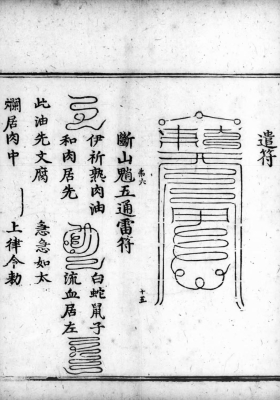 遣符
斷山魈五通雷符
伊祈熟肉油
白蛇鼠子
和肉居先
流血居左
此油先文腐
急急如太
爛居肉中
上律令勅